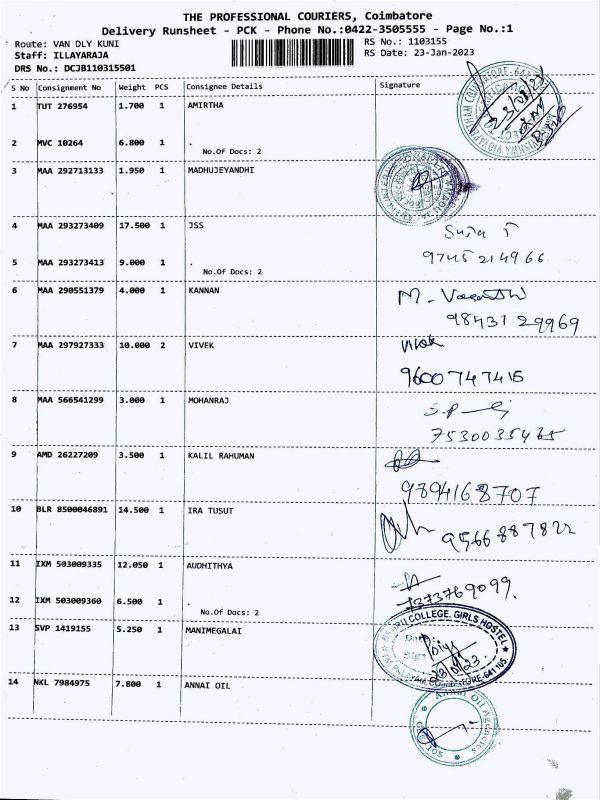 THE PROFESSIONAL COURIERS, Coimbatore
Delivery Runsheet - PCK - Phone No.:0422-3505555 - Page No.:1
Route: VAN DLY KUNI
RS No.: 1103155
Staff: ILLAYARAJA
RS Date: 23-Jan-2023
DRS No.: DCJB110315501
S No Consignment No Weight PCS Consignee Details Signature
1 TUT 276954 1.700 1 AMIRTHA
2 MVC 10264 6.800 1 .
No.Of Docs: 2
3 MAA 292713133 1.950 1 MADHUJEYANDHI
4 MAA 293273409 17.500 1 JSS
5 MAA 293273413 9.000 1 . 9745214966
No.Of Docs: 2
6 MAA 290551379 4.000 1 KANNAN
98431 29969
7 MAA 297927333 10.000 2 VIVEK Vivek
9600747415
8 MAA 566541299 3.000 1 MOHANRAJ
7530035465
9 AMD 26227209 3.500 1 KALIL RAHUMAN
9894168707
10 BLR 8500046891 14.500 1 IRA TUSUT
9566887822
11 IXM 503009335 12.050 1 AUDHITHYA
7373769099.
12 IXM 503009360 6.500 1 .
No.Of Docs: 2
13 SVP 1419155 5.250 1 MANIMEGALAI
COLLEGE, GIRLS HOSTEL
14 NKL 7984975 7.800 1 ANNAI OIL
Annai Oil Agencies